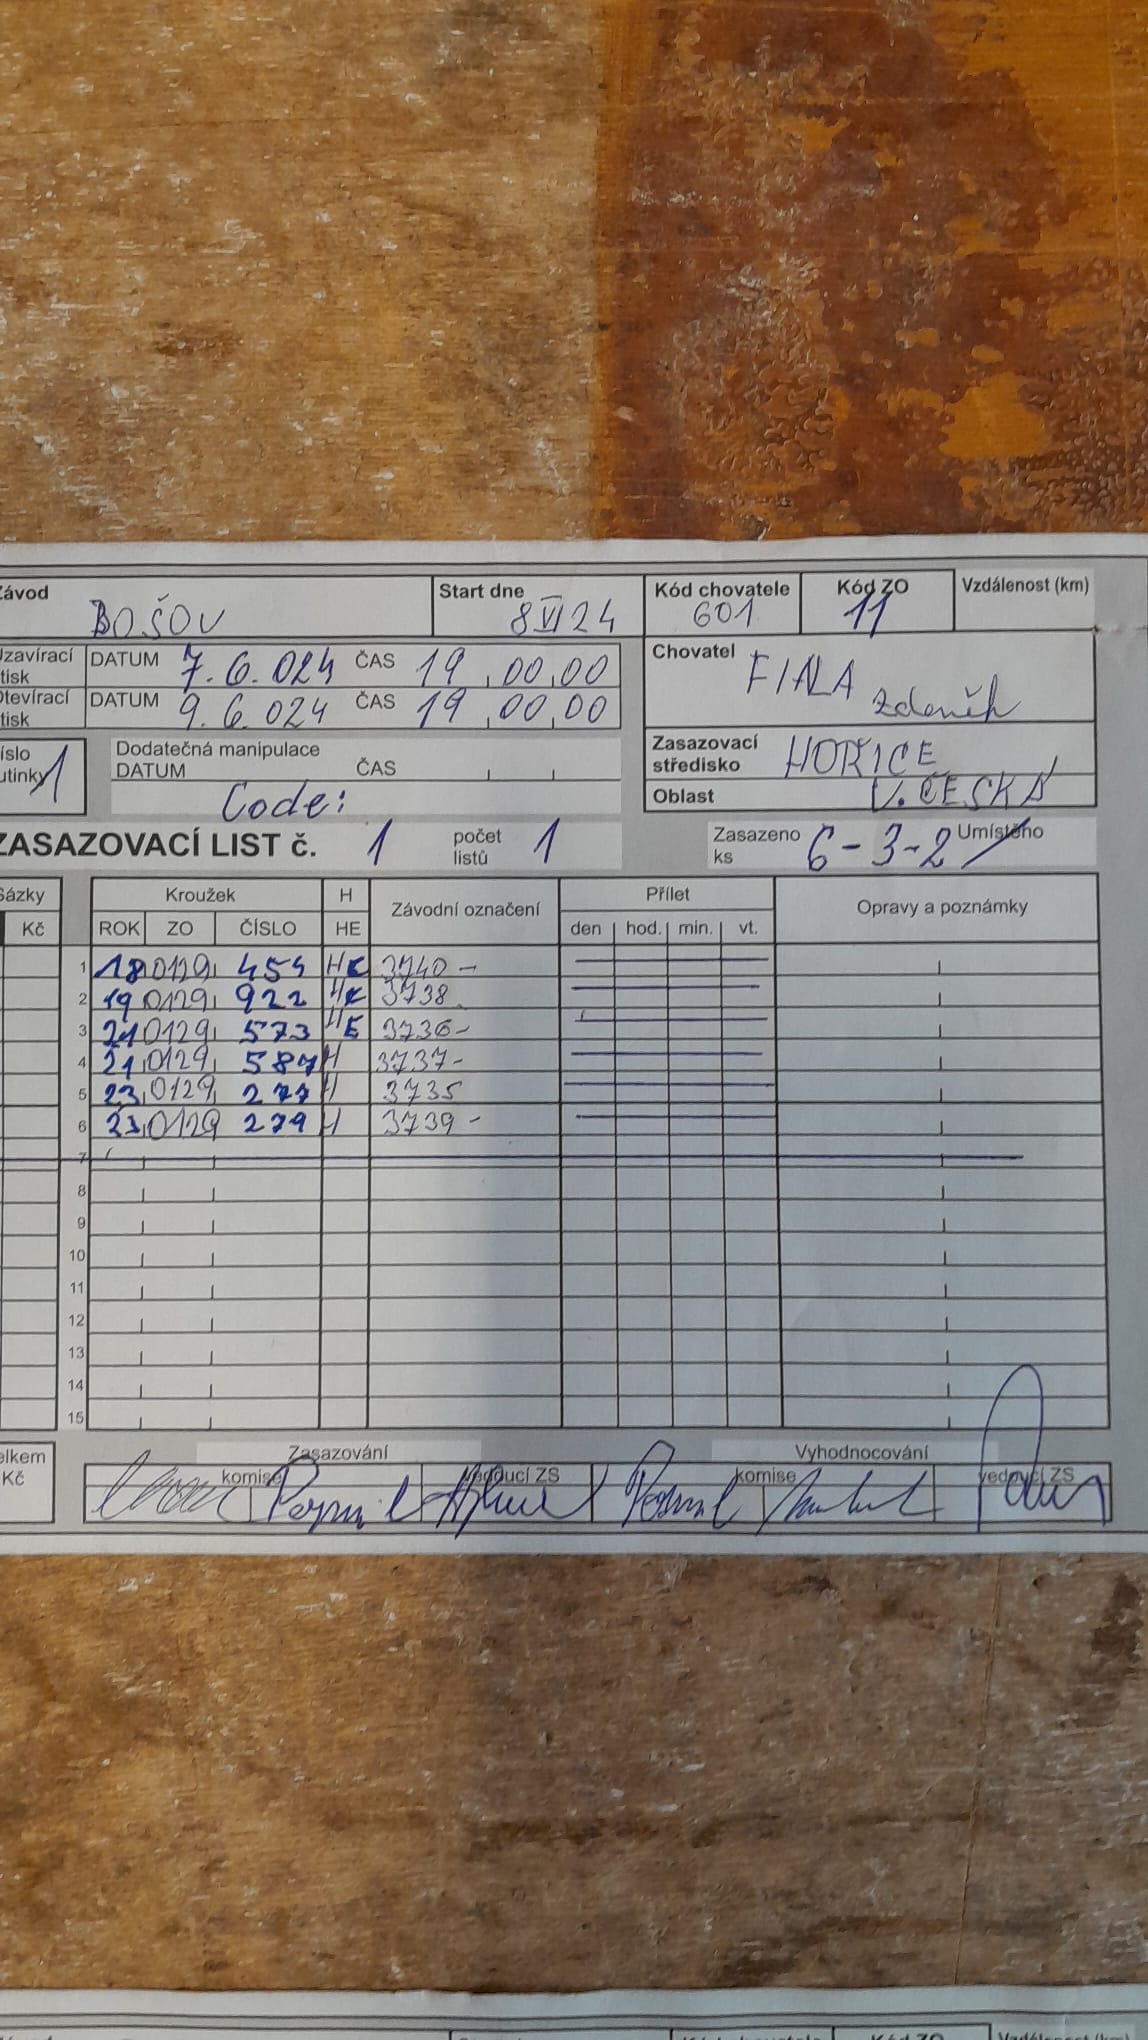 Závod Start dne Kód chovatele Kód ZO Vzdálenost (km)
BOŠOV 8 VI 24 601 11
Uzavírací tisk DATUM 7. 6. 024 ČAS 19,00,00
Otevírací tisk DATUM 9. 6. 024 ČAS 19,00,00
Chovatel FIALA Zdeněk
číslo putinky 1 Dodatečná manipulace
DATUM ČAS
Code:
Zasazovací středisko HOŘICE
Oblast V. ČESKÁ
ZASAZOVACÍ LIST č. 1 počet listů 1 Zasazeno ks 6-3-2 Umístěno
Sázky Kroužek H Závodní označení Přílet Opravy a poznámky
Kč ROK ZO ČÍSLO HE den hod. min. vt.
1 18 0129 454 HE 3740 -
2 19 0129 922 HE 3738
3 21 0129 573 HE 3736 -
4 21 0129 587 H 3737 -
5 23 0129 277 H 3735
6 23 0129 279 H 3739 -
7
8
9
10
11
12
13
14
15
Celkem Kč Zasazování Vyhodnocování
komise vedoucí ZS komise vedoucí ZS
Kód ZO Vzdálenost (km)